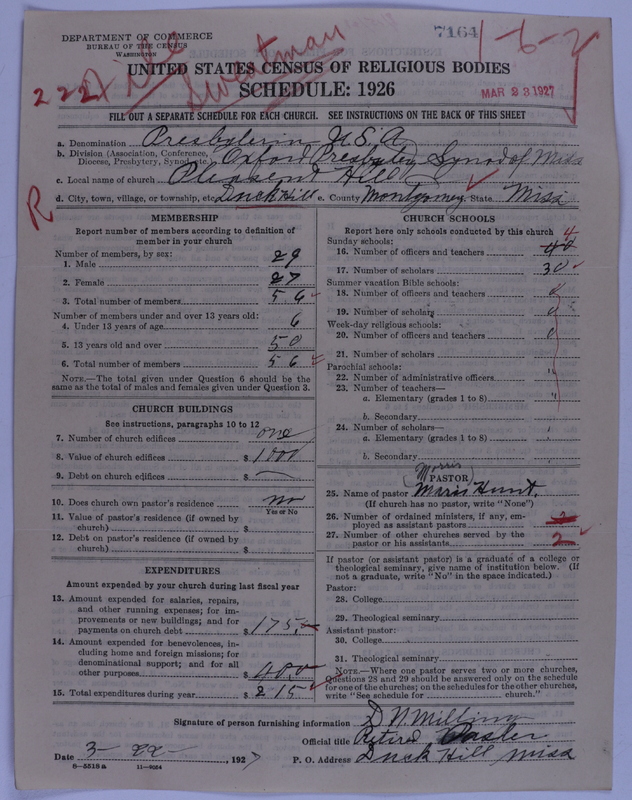 7164
1-6-2
DEPARTMENT OF COMMERCE
BUREAU OF THE CENSUS
WASHINGTON
222
Sweatman
UNITED STATES CENSUS OF RELIGIOUS BODIES
SCHEDULE: 1926
MAR 23 1927
FILL OUT A SEPARATE SCHEDULE FOR EACH CHURCH. SEE INSTRUCTIONS ON THE BACK OF THIS SHEET
a. Denomination Presbyterin, U.S.A
b. Division (Association, Conference, Diocese, Presbytery, Synod, etc. Oxford Presbytery Synod of Miss
c. Local name of church Pleasent Hill
d. City, town, village, or township, etc. Duck Hill e. County Montgomey State Miss
R
MEMBERSHIP
Report number of members according to definition of
member in your church
Number of members, by sex:
1. Male 29
2. Female 27
3. Total number of members 56
Number of members under and over 13 years old:
4. Under 13 years of age 6
5. 13 years old and over 50
6. Total number of members 56
NOTE.—The total given under Question 6 should be the
same as the total of males and females given under Question 3.
CHURCH BUILDINGS
See instructions, paragraphs 10 to 12
7. Number of church edifices one
8. Value of church edifices $ 1000
9. Debt on church edifices $
10. Does church own pastor's residence no
Yes or No
11. Value of pastor's residence (if owned by
church) $
12. Debt on pastor's residence (if owned by
church) $
EXPENDITURES
Amount expended by your church during last fiscal year
13. Amount expended for salaries, repairs,
and other running expenses; for im-
provements or new buildings; and for
payments on church debt $ 175.
14. Amount expended for benevolences, in-
cluding home and foreign missions; for
denominational support; and for all
other purposes $ 40.0
15. Total expenditures during year $ 215
CHURCH SCHOOLS
Report here only schools conducted by this church
Sunday schools: 4
16. Number of officers and teachers
17. Number of scholars 30
Summer vacation Bible schools:
18. Number of officers and teachers 0
19. Number of scholars 0
Week-day religious schools:
20. Number of officers and teachers 0
21. Number of scholars
Parochial schools:
22. Number of administrative officers "
23. Number of teachers—
a. Elementary (grades 1 to 8) "
b. Secondary
24. Number of scholars—
a. Elementary (grades 1 to 8)
b. Secondary
Morris
PASTOR
25. Name of pastor Mris Hunt.
(If church has no pastor, write "None")
26. Number of ordained ministers, if any, em-
ployed as assistant pastors
27. Number of other churches served by the
pastor or his assistants 2
If pastor (or assistant pastor) is a graduate of a college or
theological seminary, give name of institution below. (If
not a graduate, write "No" in the space indicated.)
Pastor:
28. College
29. Theological seminary
Assistant pastor:
30. College
31. Theological seminary
NOTE.—Where one pastor serves two or more churches,
Questions 28 and 29 should be answered only on the schedule
for one of the churches; on the schedules for the other churches,
write "See schedule for church."
Signature of person furnishing information D N Milling
Official title Retired Paster
Date 3-22- 1927 P. O. Address Duck Hill Miss
8-5518a 11-9054